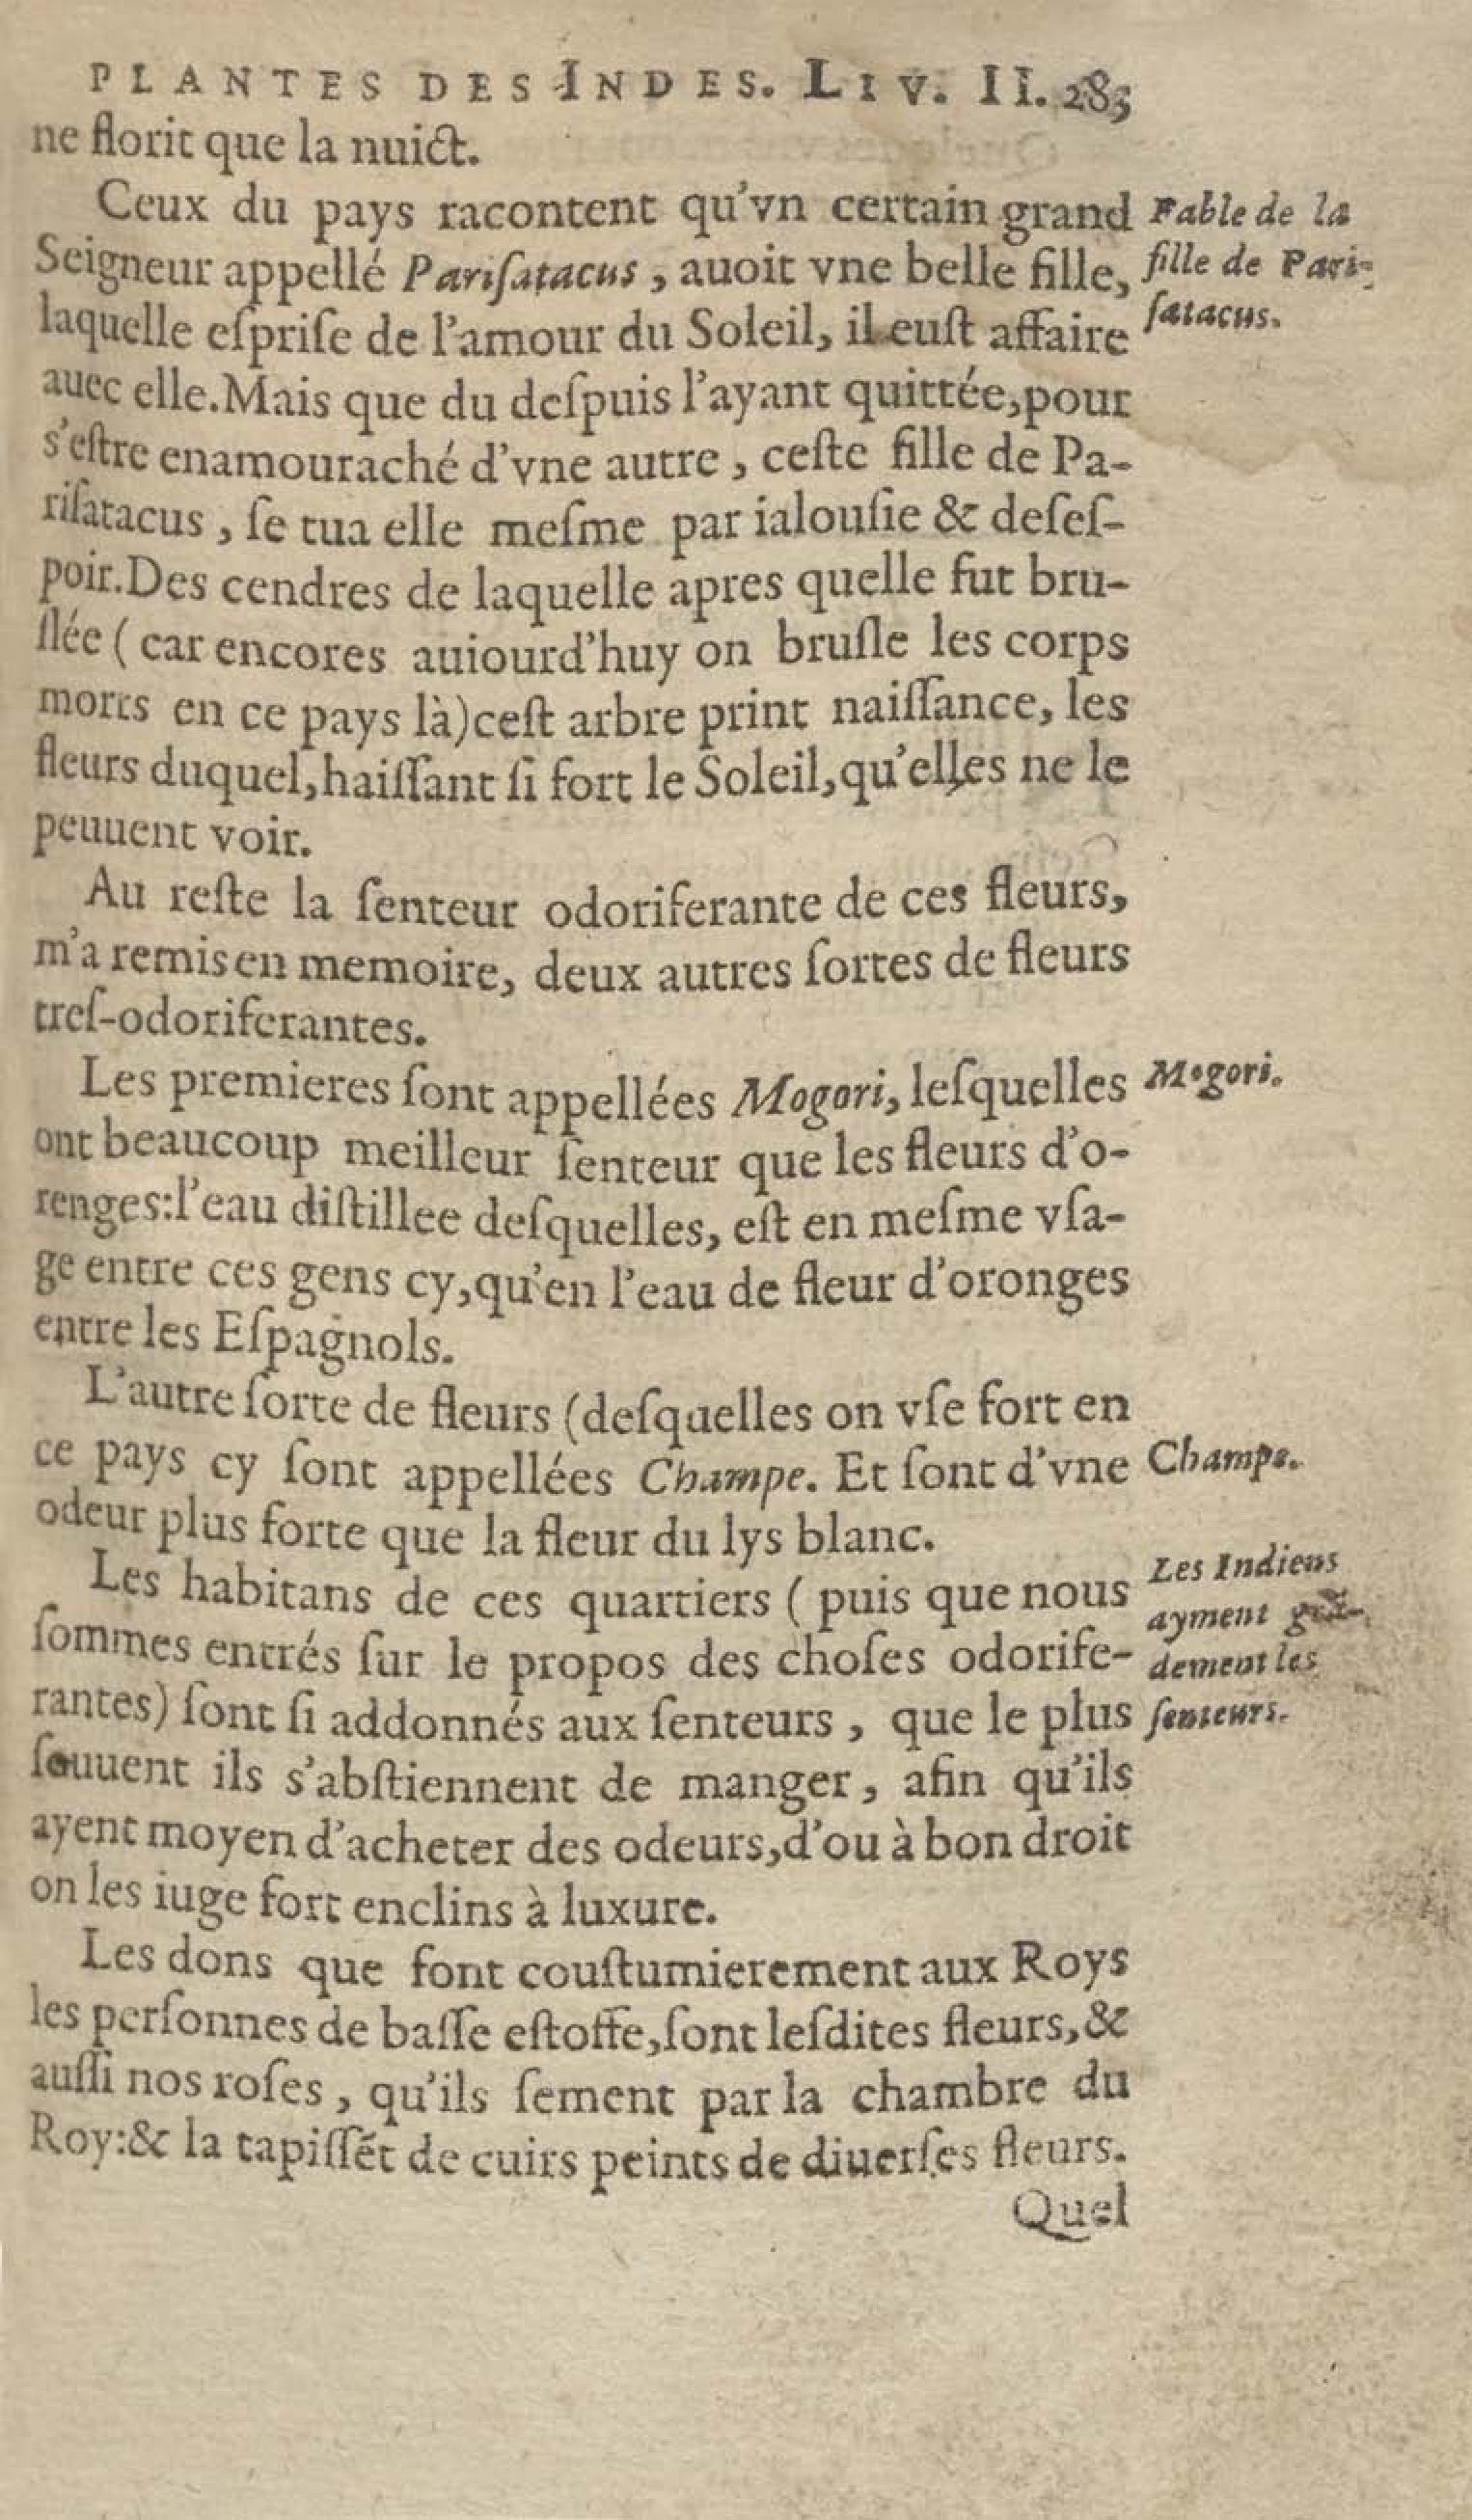 PLANTES DES INDES. LIV. II. 283
ne florit que la nuict.
Ceux du pays racontent qu'vn certain grand
Seigneur appellé Pariſatacus, auoit vne belle fille,
laquelle eſpriſe de l'amour du Soleil, il euſt affaire
auec elle. Mais que du deſpuis l'ayant quittée, pour
s'eſtre enamouraché d'vne autre, ceſte fille de Pa-
riſatacus, ſe tua elle meſme par ialouſie & deſeſ-
poir. Des cendres de laquelle apres quelle fut bru-
ſlée (car encores auiourd'huy on bruſle les corps
morts en ce pays là) ceſt arbre print naiſſance, les
fleurs duquel, haiſſant ſi fort le Soleil, qu'elles ne le
peuuent voir.
Au reſte la ſenteur odoriferante de ces fleurs,
m'a remis en memoire, deux autres ſortes de fleurs
treſ-odoriferantes.
Les premieres ſont appellées Mogori, leſquelles
ont beaucoup meilleur ſenteur que les fleurs d'o-
renges: l'eau diſtillee deſquelles, eſt en meſme vſa-
ge entre ces gens cy, qu'en l'eau de fleur d'oronges
entre les Eſpagnols.
L'autre ſorte de fleurs (deſquelles on vſe fort en
ce pays cy ſont appellées Champe. Et ſont d'vne
odeur plus forte que la fleur du lys blanc.
Les habitans de ces quartiers ( puis que nous
ſommes entrés ſur le propos des choſes odorife-
rantes) ſont ſi addonnés aux ſenteurs, que le plus
ſouuent ils s'abſtiennent de manger, afin qu'ils
ayent moyen d'acheter des odeurs, d'ou à bon droit
on les iuge fort enclins à luxure.
Les dons que font couſtumierement aux Roys
les perſonnes de baſſe eſtoffe, ſont leſdites fleurs, &
auſſi nos roſes, qu'ils ſement par la chambre du
Roy: & la tapiſſẽt de cuirs peints de diuerſes fleurs.
Quel
Fable de la
fille de Pari-
ſatacus.
Mogori.
Champe.
Les Indiens
ayment grã-
dement les
ſenteurs.